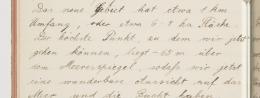 Das neue Gebiet hat etwa 1 km
Umfang, oder etwa 6-8 ha Fläche.
Der höchste Punkt, an dem wir jetzt
gehen können, liegt 63 m über
dem Meeresspiegel, sodaß wir jetzt
eine wunderbare Aussicht auf das
Meer und die Bucht haben